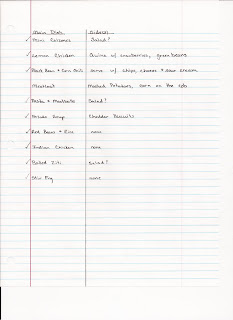 Main Dish Side(s)
✓ Mini Calzones Salad?
✓ Lemon Chicken Quinoa w/ cranberries, green beans
✓ Black Bean + Corn Chili serve w/ chips, cheese + sour cream
Meatloaf Mashed Potatoes, corn on the cob
✓ Pasta + Meatballs Salad?
✓ Potato Soup Cheddar Biscuits
✓ Red Beans + Rice none
✓ Indian Chicken none
✓ Baked Ziti Salad?
✓ Stir Fry none